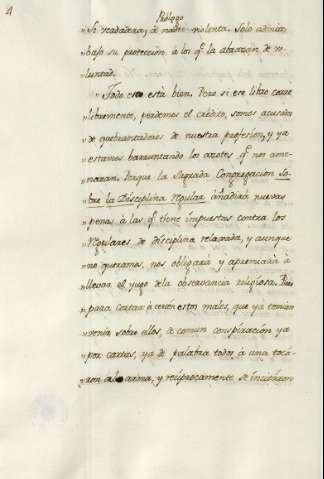 4
Prólogo
"Si verdadera, à nadie violenta. Solo admite
"baxo su protección à los qe la abrazan de vo-
luntad.
"Todo esto está bien. Pero si ese libro corre
"libremente, perdemos el crédito, somos acusados
"de quebrantadores de nuestra profesion, y ya
"estamos barruntando los azotes qe nos ame-
"nazan. Porque la Sagrada Congregacion so-
"bre la Disciplina regular añadirá nuevas
"penas à las qe tiene impuestas contra los
"regulares de disciplina relaxada, y aunque
"no queramos, nos obligará y apremiará à
"llevar el yugo de la observancia religiosa. Pues
"para cortar à cercén estos males, que ya temian
"venia sobre ellos, de comun conspiración ya
"por cartas, ya de palabra todos à una toca-
"ron al arma, y recíprocamente se incitaron